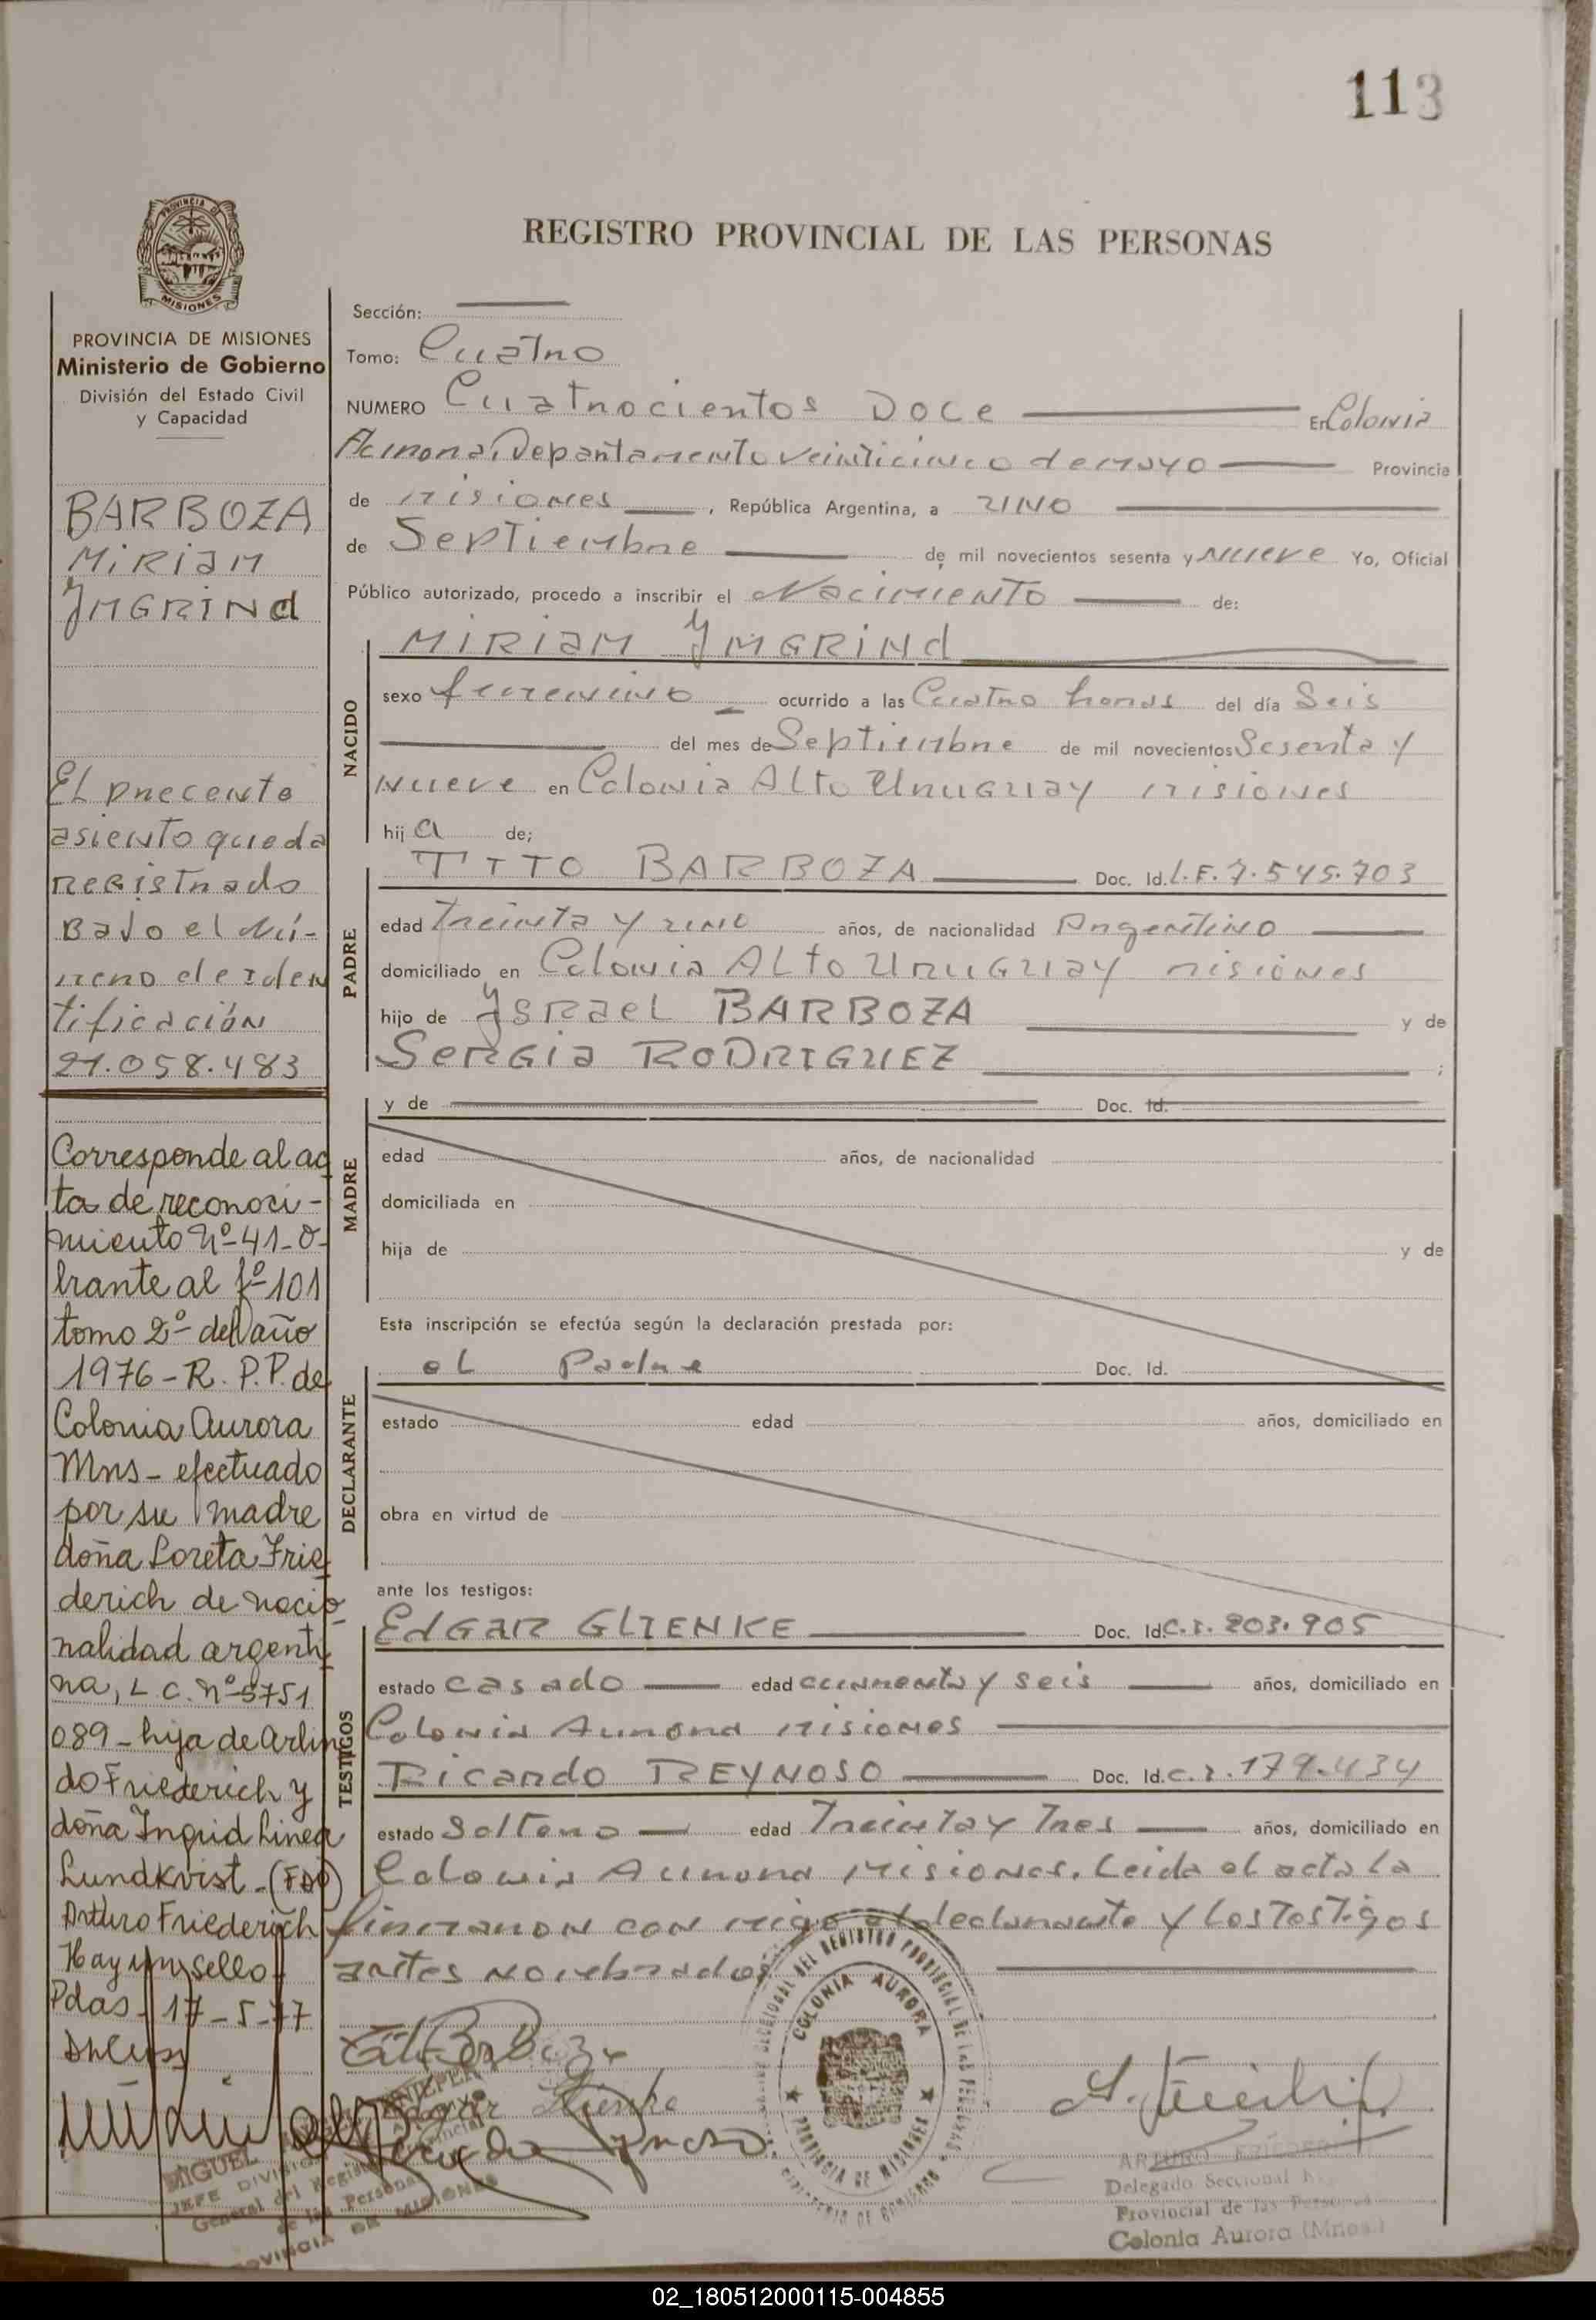 113
REGISTRO PROVINCIAL DE LAS PERSONAS
PROVINCIA DE MISIONES
Ministerio de Gobierno
División del Estado Civil
y Capacidad
BARBOZA
MiRiam
YMGRiNd
EL precente
asiento queda
Registrado
Bajo el Nú-
mero de iden
tificación
21.058.483
Corresponde al ac
ta de reconoci-
miento Nº 41-O-
brante al fº 101
tomo 2º del año
1976 - R. P. P. de
Colonia Aurora
Mns - efectuado
por su madre
doña Loreta Frie
derich de nacio-
nalidad argenti
na, L. C. Nº 5751
089 - hija de Arlin
do Friederich y
doña Ingrid Linea
Lundkvist - (FDO)
Arturo Friederich
Hay un sello -
Pdas - 17-5-77
Sección:
Tomo: Cuatro
NUMERO Cuatrocientos Doce En Colonia
Aurora, Departamento veinticinco de mayo Provincia
de misiones, República Argentina, a uno
de Septiembre de mil novecientos sesenta y nueve Yo, Oficial
Público autorizado, procedo a inscribir el Nacimiento de:
NACIDO
MiRiam YMGRiNd
sexo femenino ocurrido a las Cuatro horas del día Seis
del mes de Septiembre de mil novecientos Sesenta y
Nueve en Colonia Alto Uruguay misiones
hija de;
PADRE
TITO BARBOZA Doc. Id. L.E. 7.545.703
edad treinta y uno años, de nacionalidad Argentino
domiciliado en Colonia Alto Uruguay misiones
hijo de YsRael BARBOZA y de
SeRGia RODRIGUEZ ;
MADRE
y de Doc. Id.
edad años, de nacionalidad
domiciliada en
hija de y de
Esta inscripción se efectúa según la declaración prestada por:
DECLARANTE
el Padre Doc. Id.
estado edad años, domiciliado en
obra en virtud de
ante los testigos:
TESTIGOS
EdGaR GLIENKE Doc. Id. C.I. 203.905
estado casado edad cuarenta y seis años, domiciliado en
Colonia Aurora misiones
Ricardo REYNOSO Doc. Id. C.I. 179.434
estado Soltero edad Treinta y Tres años, domiciliado en
Colonia Aurora Misiones. Leida el acta la
firmaron con migo el declarante y los testigos
antes nombrados
COLONIA AURORA
PROVINCIA DE MISIONES
MIGUEL
JEFE DIVISION
General del Registro Provincial
de las Personas
PROVINCIA DE MISIONES
ARTURO FRIEDERI
Delegado Seccional
Provincial de las Personas
Colonia Aurora (Mnes.)
02_180512000115-004855